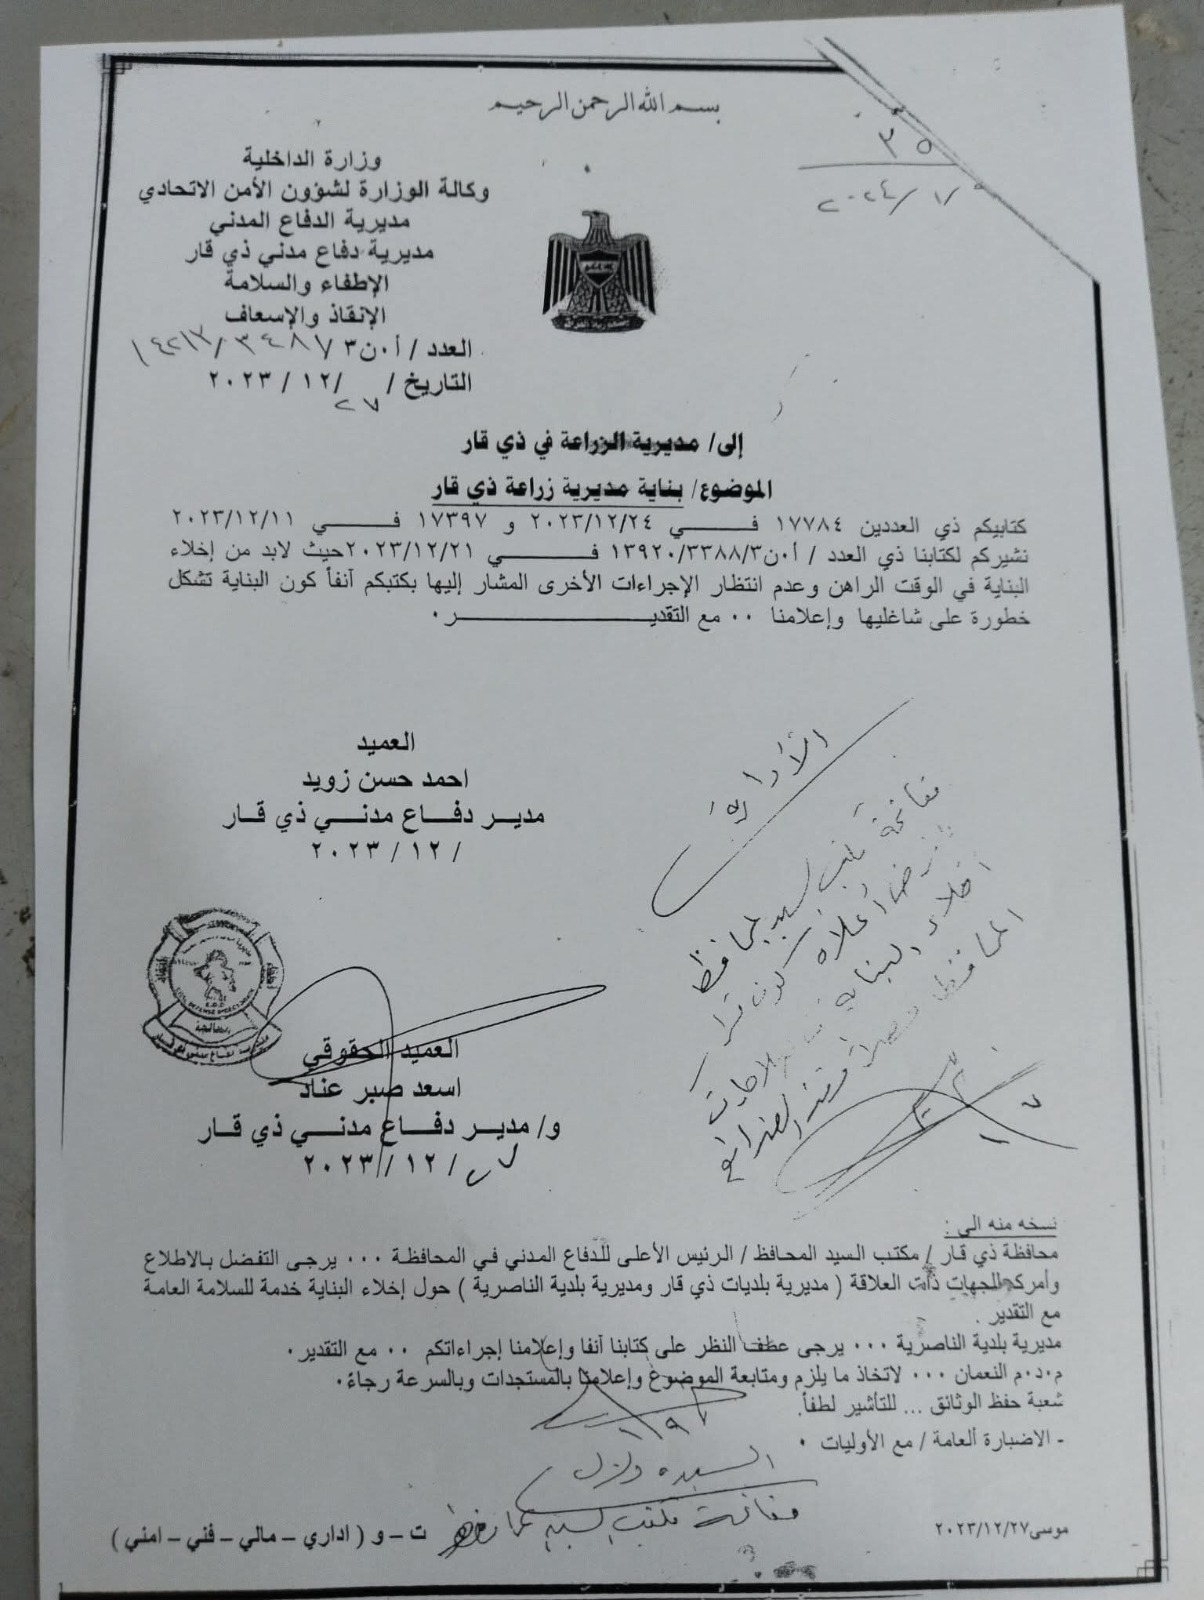 بسم الله الرحمن الرحيم
٣٥
٢٠٢٤/١/
وزارة الداخلية
وكالة الوزارة لشؤون الأمن الاتحادي
مديرية الدفاع المدني
مديرية دفاع مدني ذي قار
الإطفاء والسلامة
الإنقاذ والإسعاف
العدد / أ٠ن٣/ ٣٤٨٧/
التاريخ / ٢٧ /١٢ / ٢٠٢٣
إلى/ مديرية الزراعة في ذي قار
الموضوع/ بناية مديرية زراعة ذي قار
كتابيكم ذي العددين ١٧٧٨٤ فـــي ٢٠٢٣/١٢/٢٤ و ١٧٣٩٧ فـــي ٢٠٢٣/١٢/١١
نشيركم لكتابنا ذي العدد / أ٠ن١٣٩٢٠/٣٣٨٨/٣ فـــي ٢٠٢٣/١٢/٢١حيث لابد من إخلاء
البناية في الوقت الراهن وعدم انتظار الإجراءات الأخرى المشار إليها بكتبكم آنفاً كون البناية تشكل
خطورة على شاغليها وإعلامنا ٠٠ مع التقديـــــر ٠
العميد
احمد حسن زويد
مدير دفــاع مدنــي ذي قــار
/ ١٢/ ٢٠٢٣
الأدارة
مفاتحة مكتب السيد المحافظ
أعلاه كون قرار
اخلاء البناية
المحافظ
العميد الحقوقي
اسعد صبر عناد
و/ مدير دفــاع مدنــي ذي قــار
٢٧/ ١٢/ ٢٠٢٣
نسخه منه الى :
محافظة ذي قار / مكتب السيد المحافظ / الرئيس الأعلى للدفاع المدني في المحافظة ٠٠٠ يرجى التفضل بالاطلاع
وأمركم للجهات ذات العلاقة ( مديرية بلديات ذي قار ومديرية بلدية الناصرية ) حول إخلاء البناية خدمة للسلامة العامة
مع التقدير .
مديرية بلدية الناصرية ٠٠٠ يرجى عطف النظر على كتابنا آنفا وإعلامنا إجراءاتكم ٠٠ مع التقدير ٠
م٠د٠م النعمان ٠٠٠ لاتخاذ ما يلزم ومتابعة الموضوع وإعلامنا بالمستجدات وبالسرعة رجاءً ٠
شعبة حفظ الوثائق ... للتأشير لطفاً.
- الاضبارة ألعامة / مع الأوليات ٠
السيده
مفاتحة مكتب السيد
موسى٢٠٢٣/١٢/٢٧
ت – و ( اداري – مالي – فني – امني )